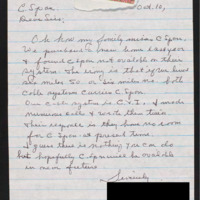 C Span Oct. 16,
Dear Sirs,
Oh how my family misses C Span.
We purchased a new home last year
& found C Span not available on their
system. The irony is that after two
miles So. or Six miles No. both
Cable systems carries C Span.
Our Cable system is C.V.I. I made
numerous calls & wrote them twice
their response is they have no room
for C Span at present time.
I guess there is nothing you can do
but hopefully C Span will be available
in near future.
Sincerely